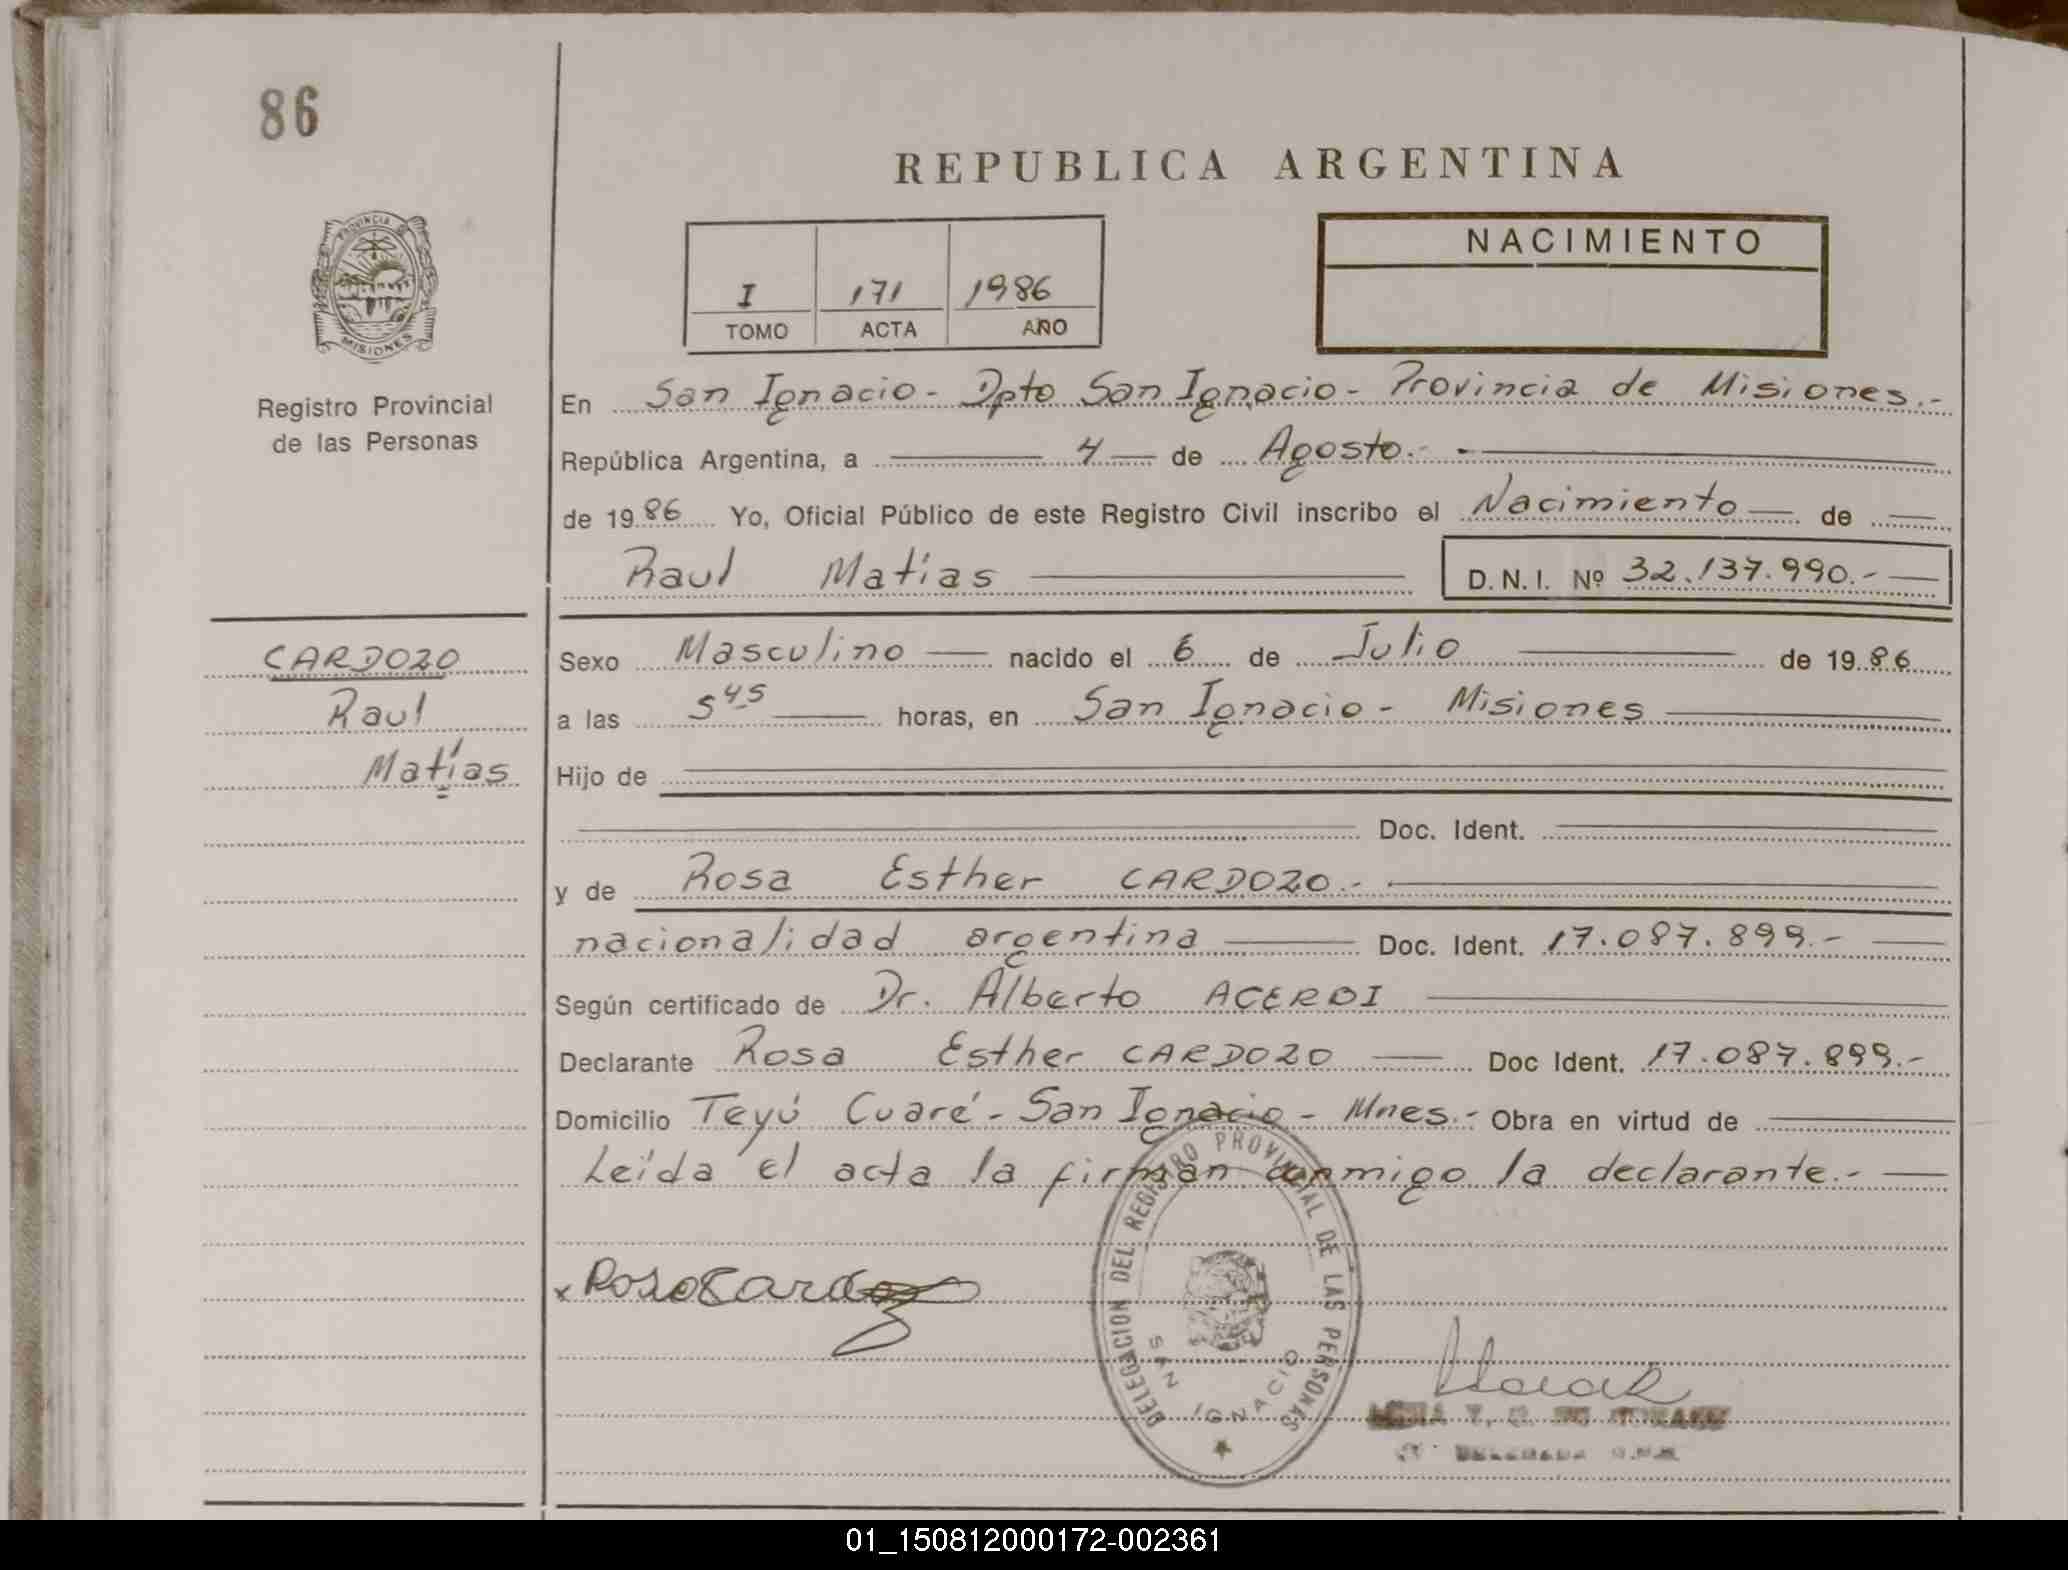 86
REPUBLICA ARGENTINA
PROVINCIA D
MISIONES
Registro Provincial
de las Personas
I 171 1986
TOMO ACTA AÑO
NACIMIENTO
En San Ignacio - Dpto San Ignacio - Provincia de Misiones.-
República Argentina, a 4 de Agosto.-
de 1986 Yo, Oficial Público de este Registro Civil inscribo el Nacimiento de
Raul Matías D.N.I. Nº 32.137.990.-
CARDOZO
Raul
Matías
Sexo Masculino nacido el 6 de Julio de 1986
a las 5 45 horas, en San Ignacio - Misiones
Hijo de
Doc. Ident.
y de Rosa Esther CARDOZO.-
nacionalidad argentina Doc. Ident. 17.087.899.-
Según certificado de Dr. Alberto ACERDI
Declarante Rosa Esther CARDOZO Doc Ident. 17.087.899.-
Domicilio Teyú Cuaré - San Ignacio - Mnes.- Obra en virtud de
Leída el acta la firman conmigo la declarante.-
x Rosa Cardozo
DELEGACION DEL REGISTRO PROVINCIAL DE LAS PERSONAS
SAN IGNACIO
01_150812000172-002361